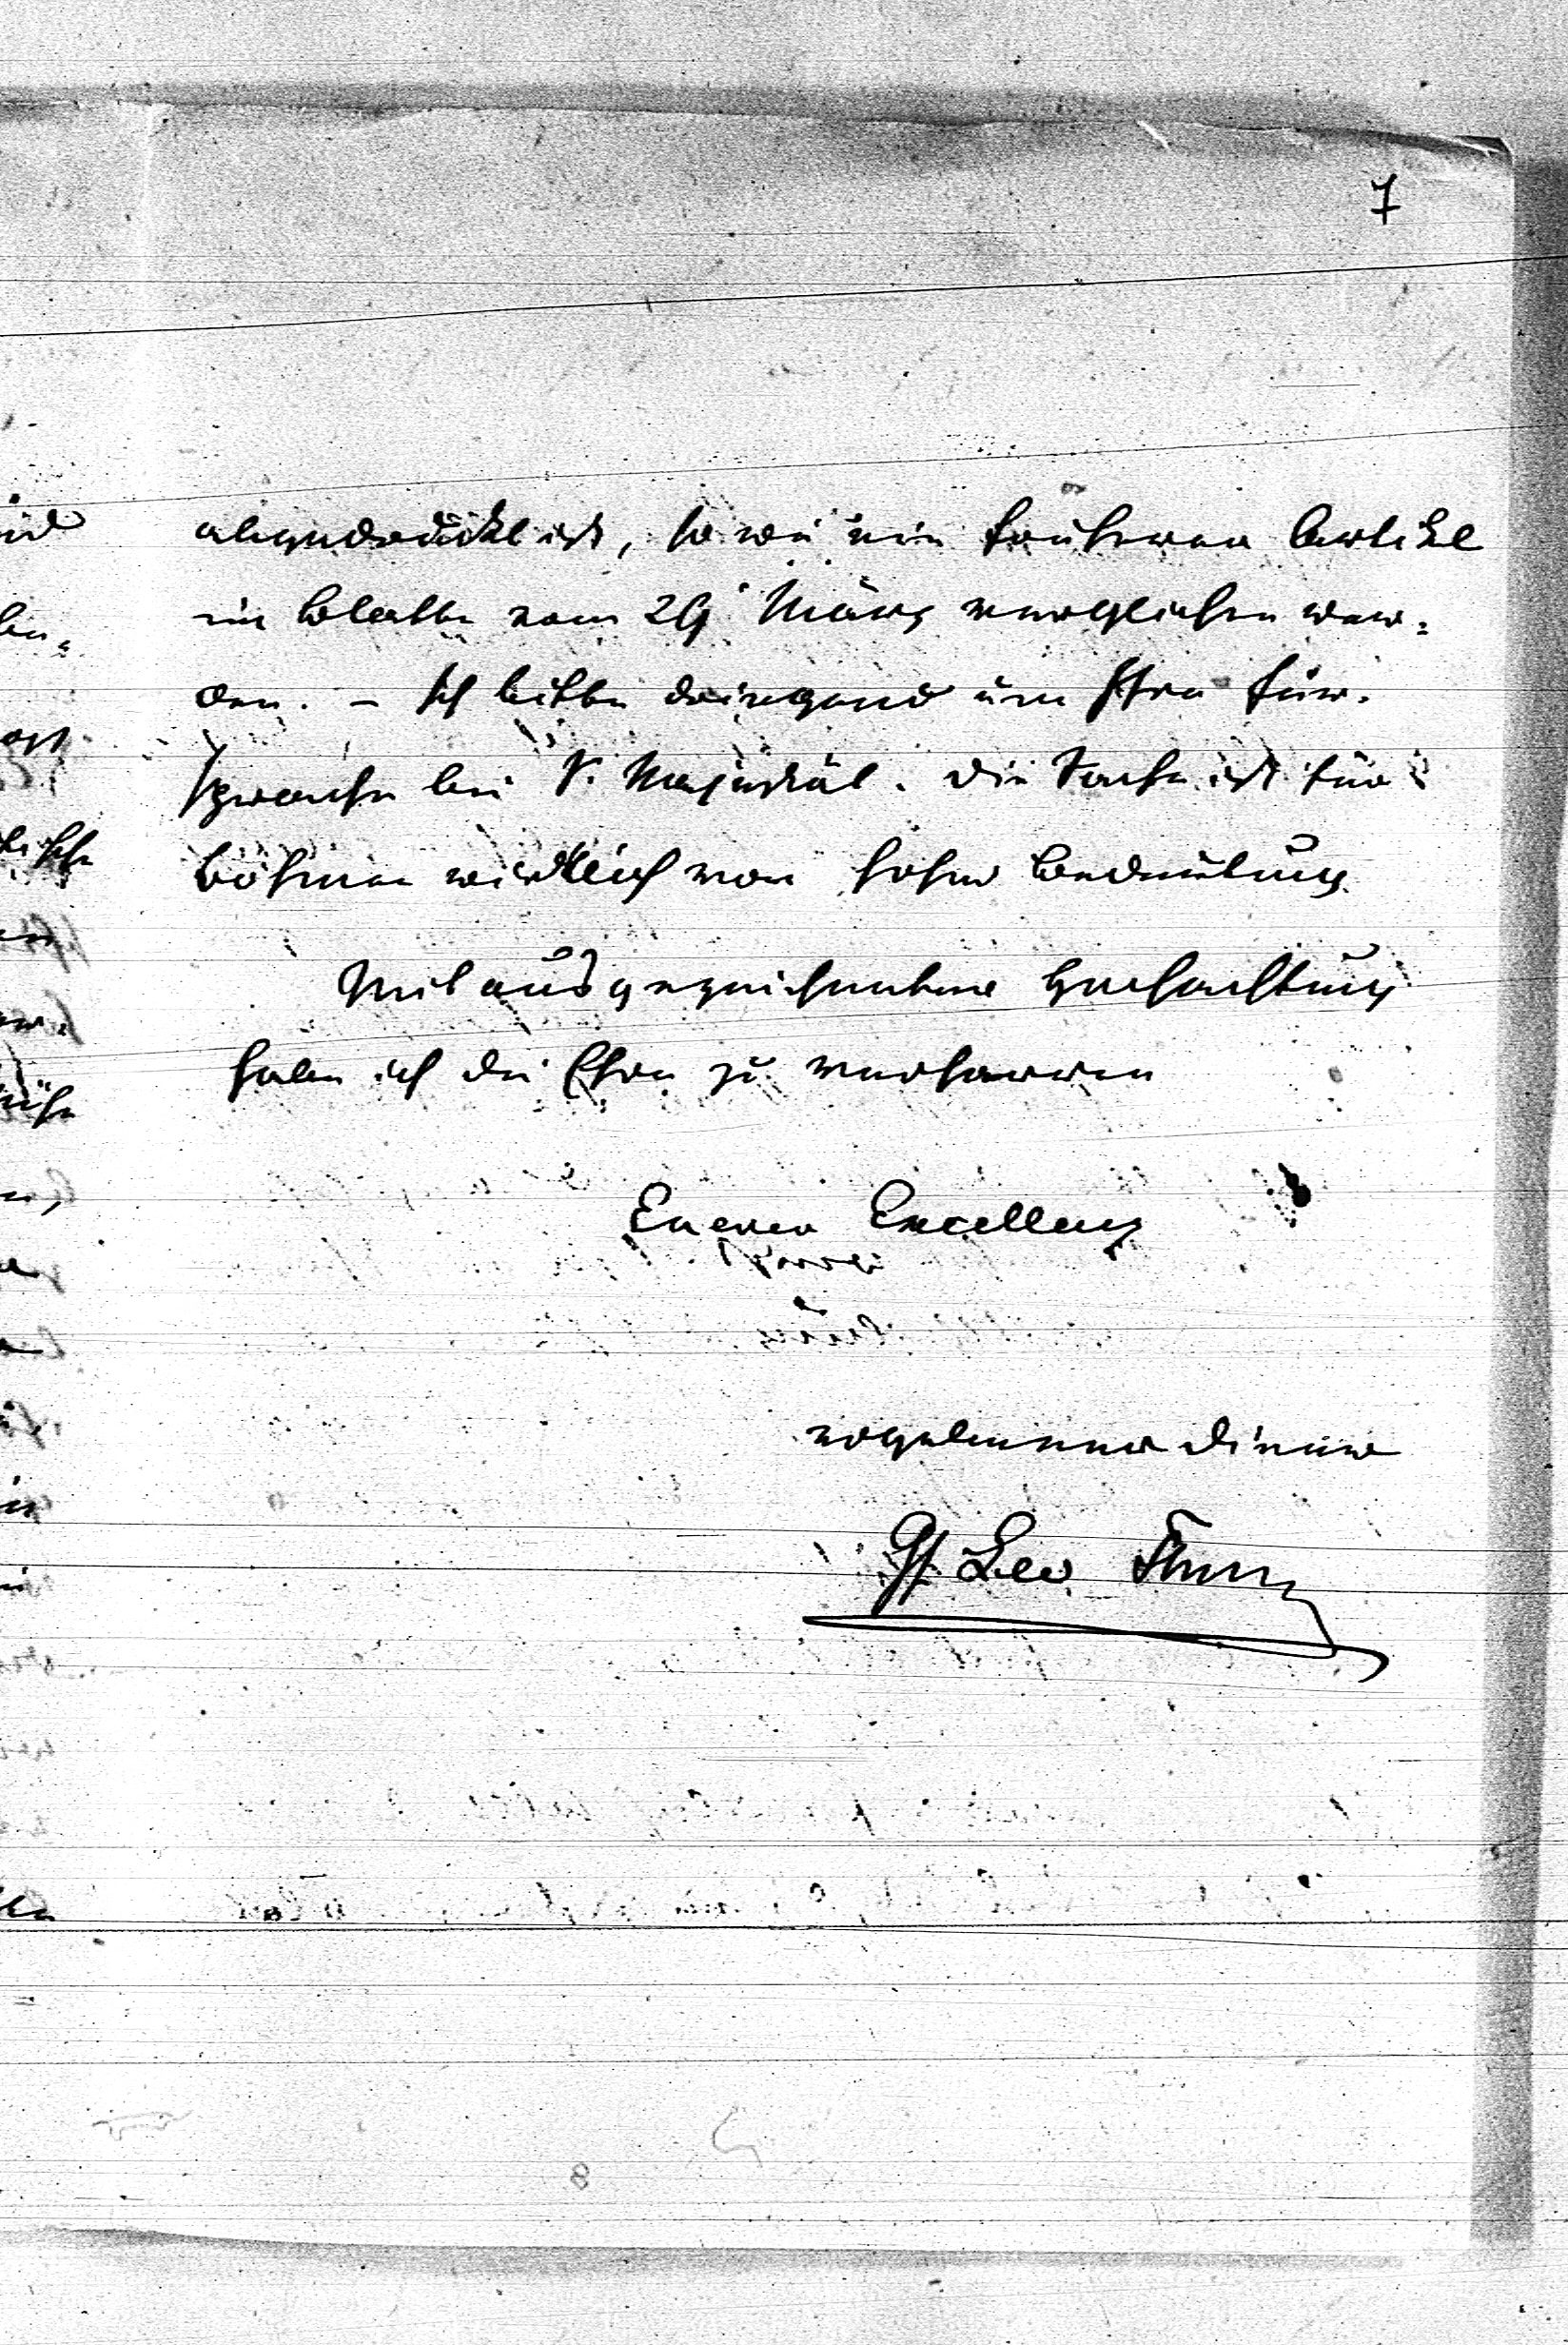 7
abgedruckt ist, so wie ein früherer Artikel
im Blatte vom 29 März verglichen wer-
den. – Ich bitte dringend um Ihre Für-
sprache bei S. Majestät. Die Sache ist für
Böhmen wirklich von hoher Bedeutung.
Mit ausgezeichneter Hochachtung
habe ich die Ehre zu verharren
Euerer Excellenz
ergebenster Diener
Gf Leo Thun
8